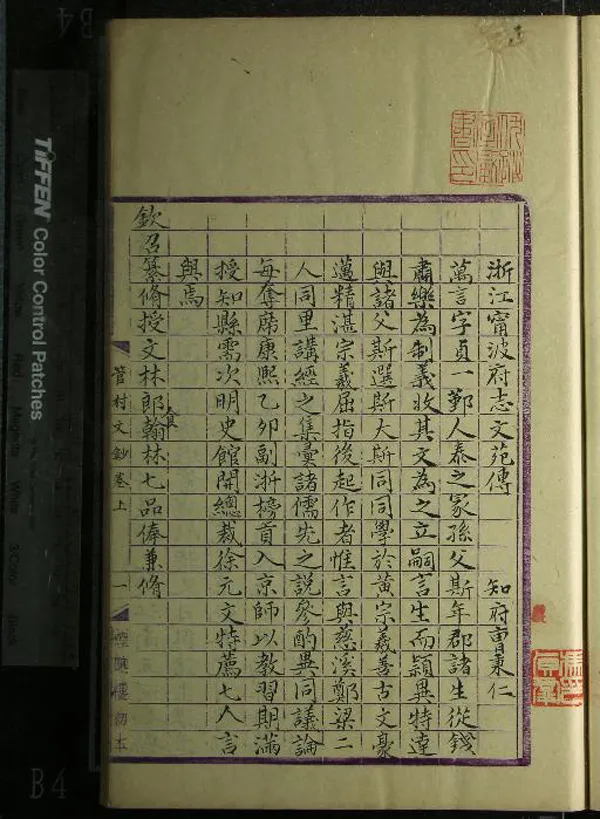 浙江甯波府志文苑傳 知府曹秉仁
萬言字貞一鄞人泰之冢孫父斯年郡諸生從錢
肅樂為制義收其文為之立嗣言生而穎異特達
與諸父斯選斯大斯同同學於黃宗羲善古文豪
邁精湛宗羲屈指後起作者惟言與慈溪鄭梁二
人同里講經之集彙諸儒先之說參酌異同議論
每奪席康熙乙夘副浙榜首入京師以教習期滿
授知縣需次明史館開總裁徐元文特薦七人言
與焉
欽召纂脩授文林郎食翰林七品俸兼脩
管村文鈔卷上 一
B4
TIFFEN Color Control Patches
B4